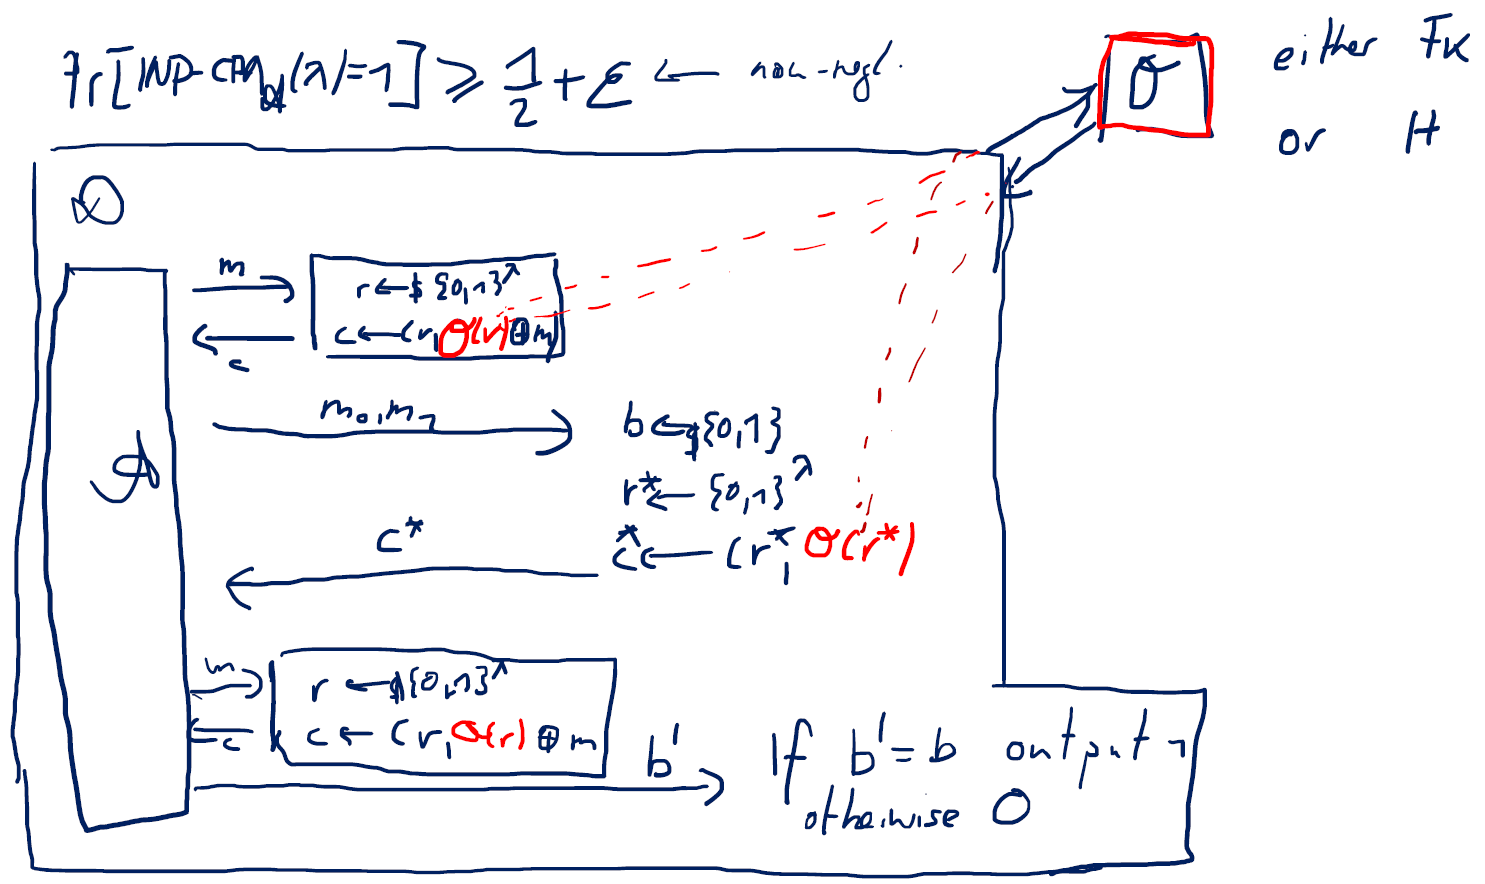 Pr[IND-CPA_A(λ)=1] ⩾ 1/2 + ε ← non-negl.
O
either F_K
or H
D
m
r ←$ {0,1}^λ
c ← (r, O(r) ⊕ m)
c
m_0, m_1
b ←$ {0,1}
A
r* ← {0,1}^λ
c*
c* ← (r*, O(r*)
m
r ←$ {0,1}^λ
c ← (r, O(r) ⊕ m
c
b'
If b' = b output 1
otherwise 0